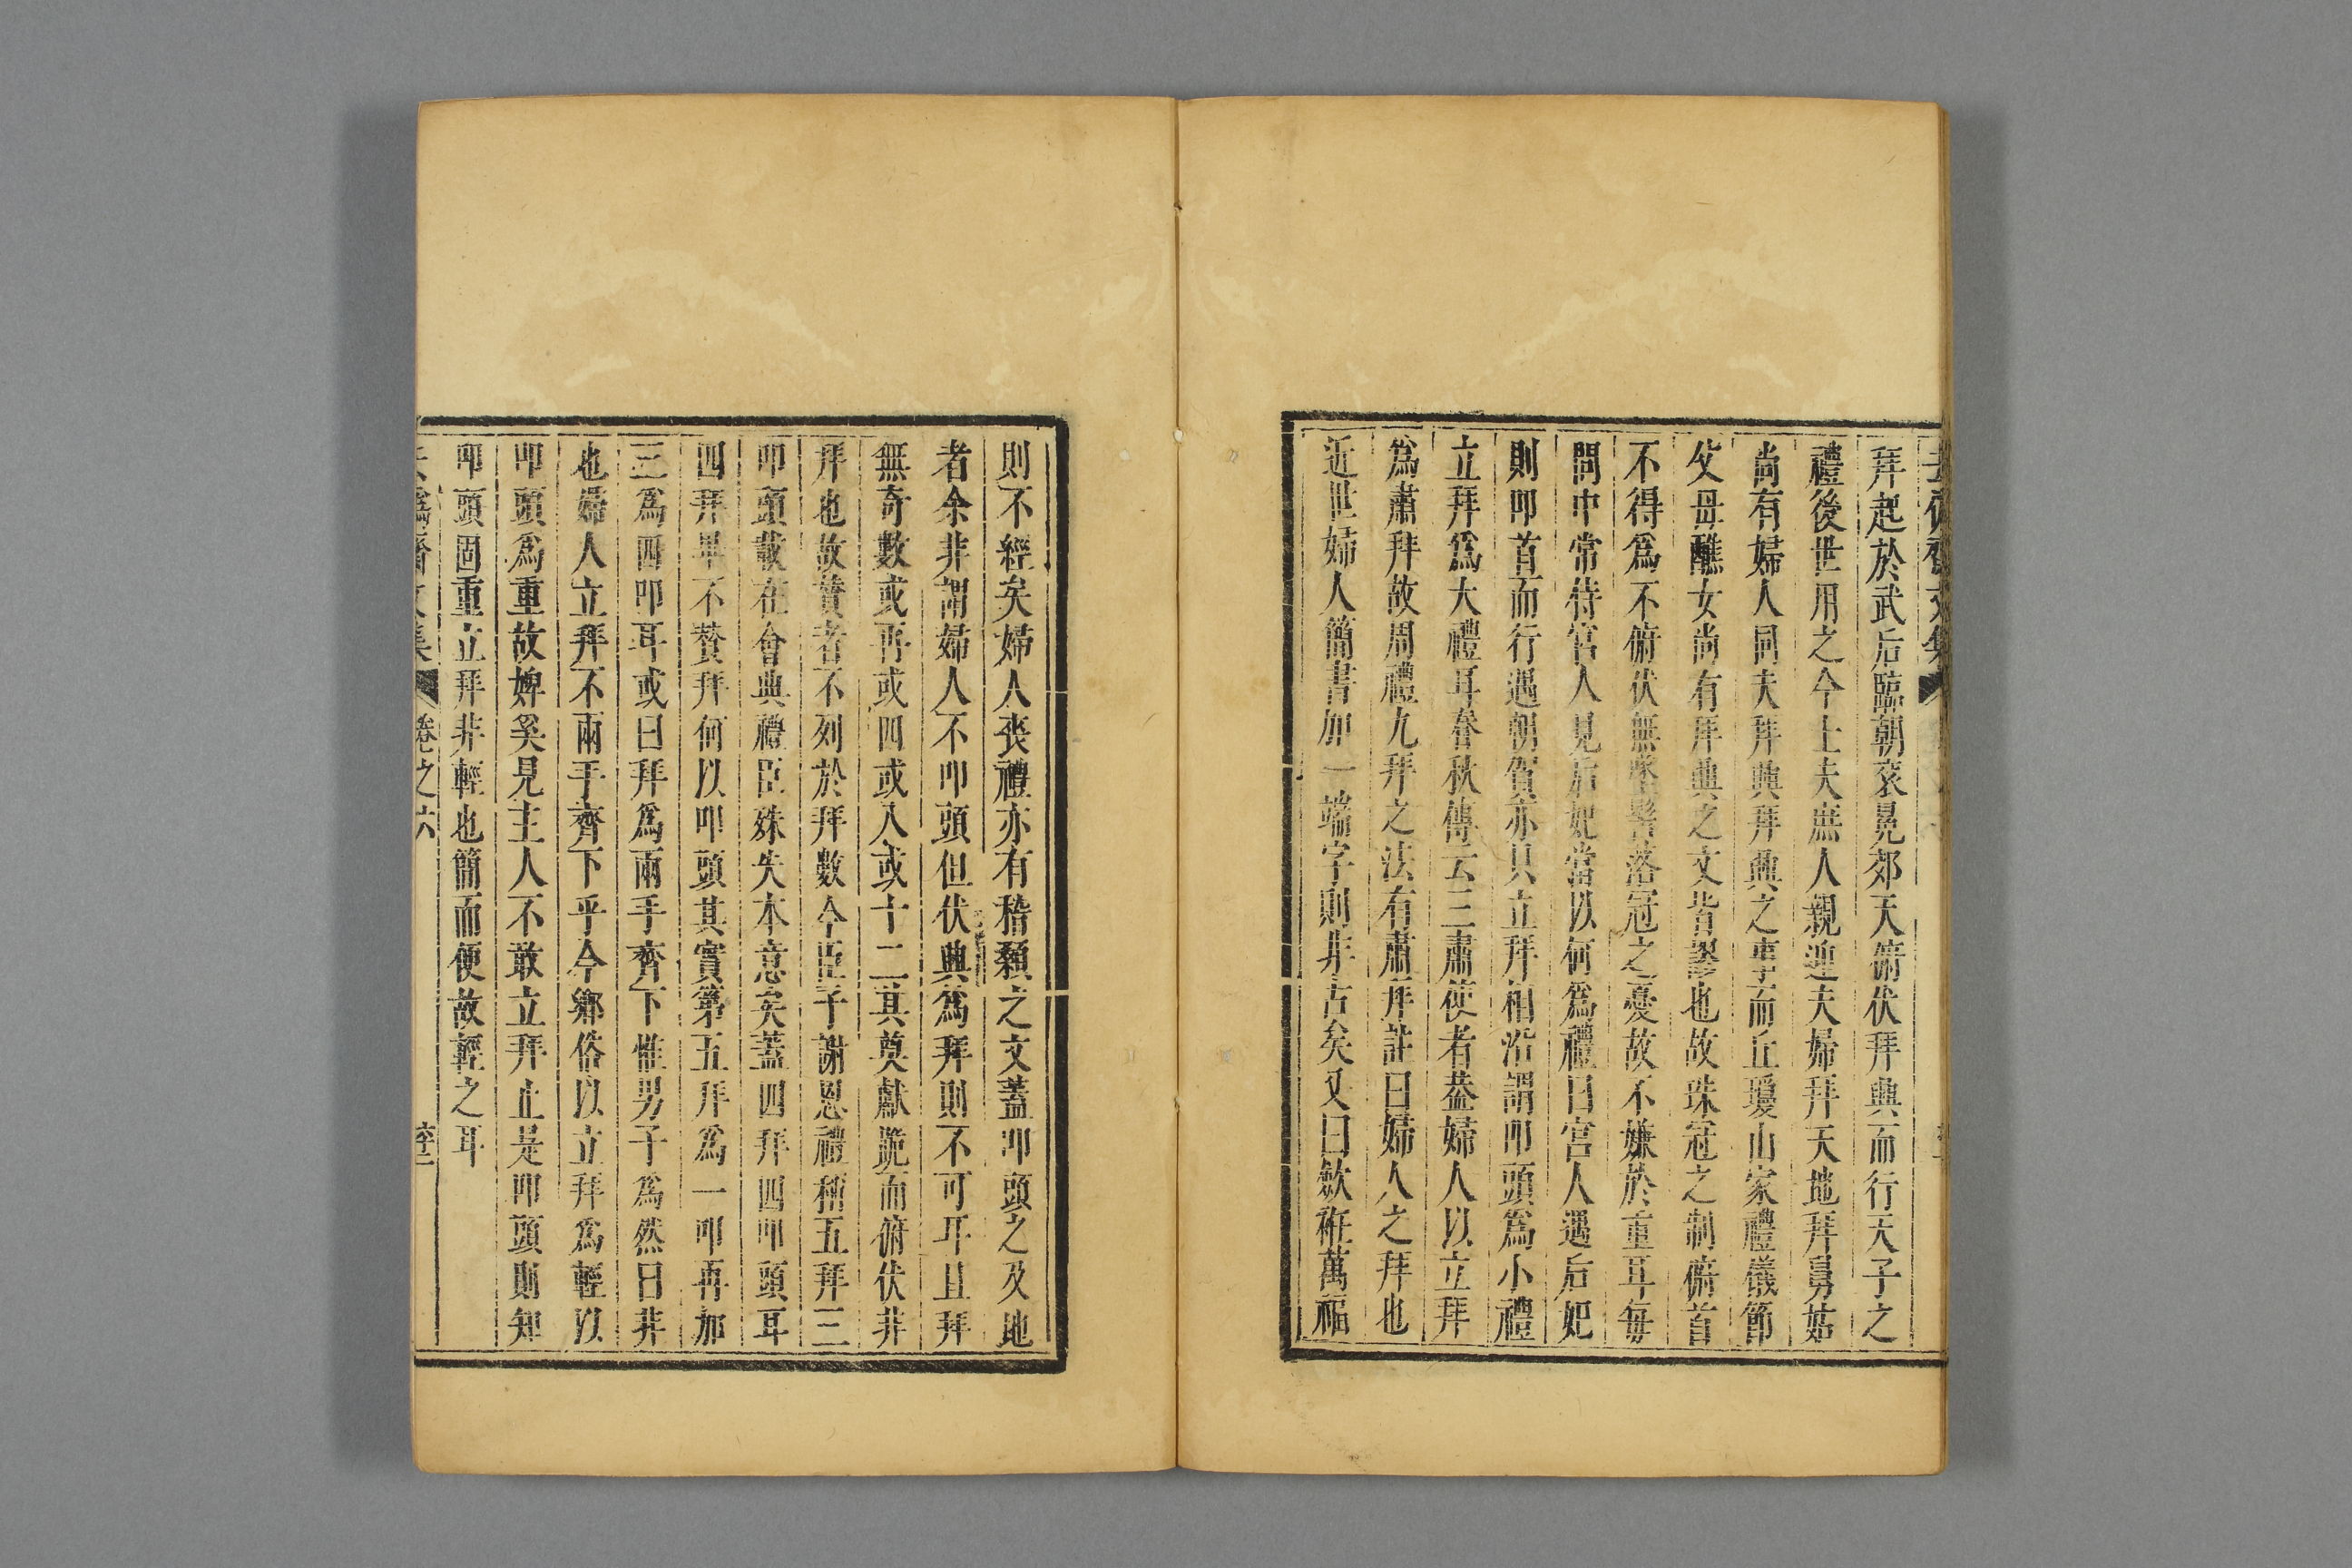 去偽齋文集
拜起於武后臨朝袞冕郊天俯伏拜興而行天子之
禮後世用之今士夫庶人親迎夫婦拜天地拜舅姑
尚有婦人同夫拜興拜興之事而丘瓊山家禮儀節
父母醮女尚有拜興之文皆謬也故珠冠之制俯首
不得爲不俯伏無墜髻落冠之憂故不嫌於重耳每
問中常侍宮人見后妃當以何爲禮曰宮人遇后妃
則叩首而行遇朝賀亦只立拜相沿謂叩頭爲小禮
立拜爲大禮耳春秋傳云三肅使者葢婦人以立拜
爲肅拜故周禮九拜之法有肅拜註曰婦人之拜也
近世婦人簡書加一端字則非古矣又曰斂衽萬福
則不經矣婦人喪禮亦有稽顙之文蓋叩頭之及地
者余非謂婦人不叩頭但伏興爲拜則不可耳且拜
無奇數或再或四或八或十二其奠獻跪而俯伏非
拜也故贊者不列於拜數今臣子謝恩禮稱五拜三
叩頭載在會典禮臣殊失本意矣蓋四拜四叩頭耳
四拜畢不贊拜何以叩頭其實第五拜爲一叩再加
三爲四叩耳或曰拜爲兩手齊下惟男子爲然曰非
也婦人立拜不兩手齊下乎今鄉俗以立拜爲輕以
叩頭爲重故婢奚見主人不敢立拜止是叩頭則知
叩頭固重立拜非輕也簡而便故輕之耳
去偽齋文集 卷之六